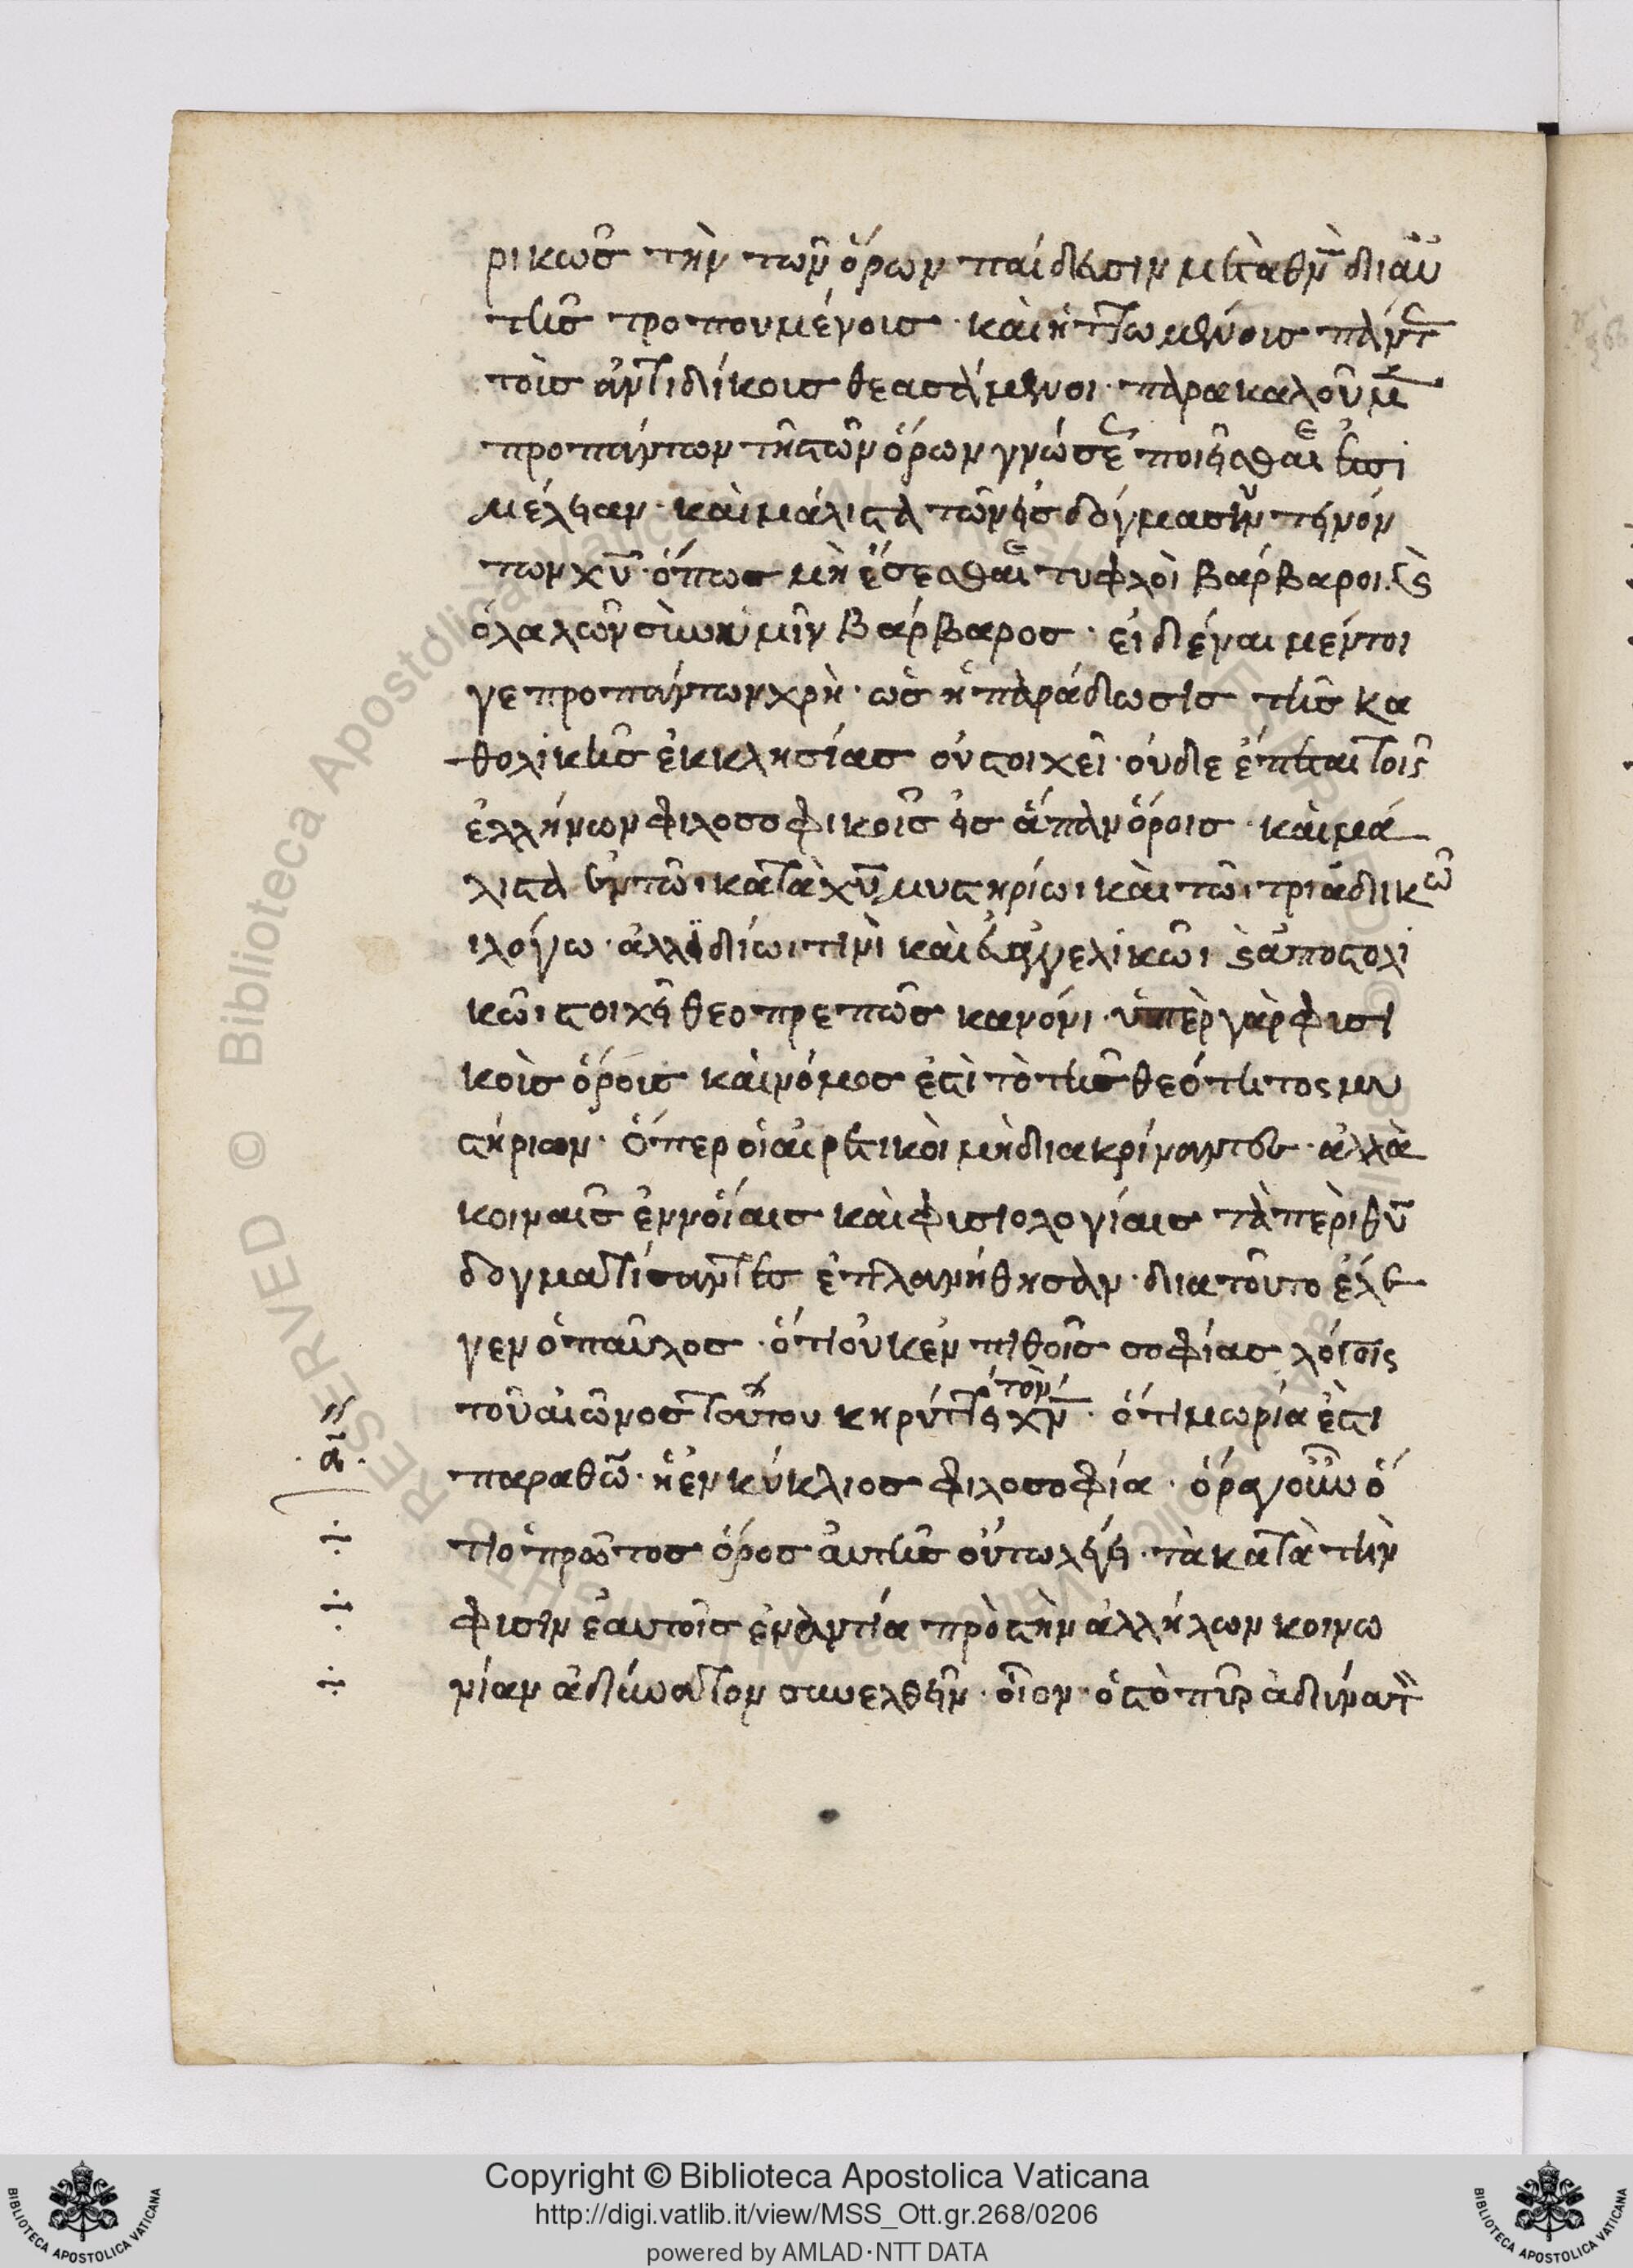 ρικῶς τὴν τῶν ὅρων παίδευσιν μετὰ θν̅ δι αὐ
τῆς τροπουμένοις · καὶ ἡττωμένοις πάντ
τοῖς ἀντιδίκοις θεασάμενοι · παρακαλοῦμ̅
προπάντων τῆς τῶν ὅρων γνώσε ποιεῖσθαι ἐπι
μέλειαν · καὶ μάλιστα τῶν εἰς δόγμασιν τεινόν
των χυ̅ · ὅπως μὴ ἔσεσθαι τυφλοὶ βάρβαροι. ϛ
ὁ λαλῶν σὺν ὑμῖν βάρβαρος · εἰδέναι μέντοι
γε προπάντων χρὴ · ὡς ἡ παράδωσις τῆς κα
θολικῆς ἐκκλησίας οὐ στοιχεῖ · οὐδε ἕπεται τοῖς
ἑλλήνων φιλοσοφικοῖς εἰς ἅπαν ὅροις · καὶ μά
λιστα ἐν τῶι κατὰ χν̅ μυστηρίωι καὶ τῶι τριαδικῶ
ι λόγω · ἀλλ ἰδίωι τινὶ καὶ εὐαγγελικῶι ϛ ἀποστολι
κῶι στοιχεῖ θεοπρεπῶς κανόνι · ὑπὲρ γὰρ φισι
κοῖς ὅροις καὶ νόμοσ ἐστὶ τὸ τῆς θεότητος μυ
στήριον · ὅπερ οἱ αἱρετικοὶ μὴ διακρίναντες · ἀλλὰ
κοιναῖς ἐννοίαις καὶ φισιολογίαις τὰ περὶ θυ̅
δογματίσαντες ἐπλανήθησαν · δια τοῦτο ἔλε
γεν ὁ παῦλος · ὅτι οὐκ ἐν πιθοῖς σοφίας λόγοις
τοῦ αἰῶνος τούτου κηρύττει τὸν χν̅ · ὅτι μωρία ἐστὶ
παρα θῶ · ἡ ἐνκύκλιος φιλοσοφία · ὅρα γοῦν ὅ
·α̅·
τι ὁ πρῶτος ὅρος αὐτῆς οὕτω λέγει · τὰ κατὰ τὴν
φισιν ἑαυτοῖς ἐναντία πρὸς τὴν ἀλλήλων κοινω
νίαν ἀδύνατον συνελθεῖν · οἷον · ὅτι τὸ πῦρ ἀδίνατ
Copyright © Biblioteca Apostolica Vaticana
http://digi.vatlib.it/view/MSS_Ott.gr.268/0206
powered by AMLAD·NTT DATA
BIBLIOTECA APOSTOLICA VATICANA
BIBLIOTECA APOSTOLICA VATICANA